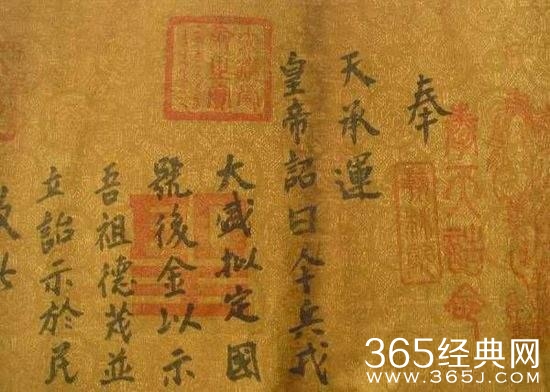 奉
天承運
皇帝詔曰今兵戎
大盛拟定國
號後金以示
吾祖德茂並
立詔示於民
365经典网
www.365j.com